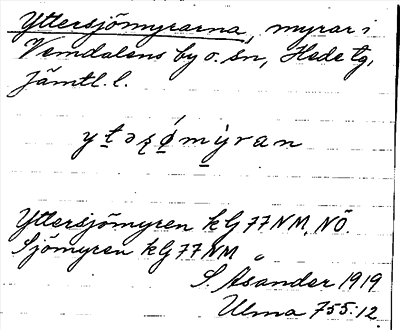 Yttersjömyrarna, myrar i
Vemdalens by o. sn, Hede tg,
Jämtl. l.
Yttersjömyren kG 77 NM, NÖ.
Sjömyren kG 77 NM
S. Åsander 1919
Ulma 755:12.